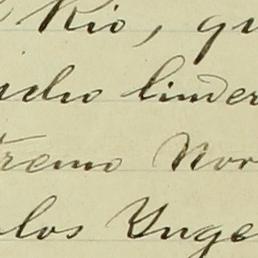 Rio, qu
icho linder
tremo Nor
los Ynge